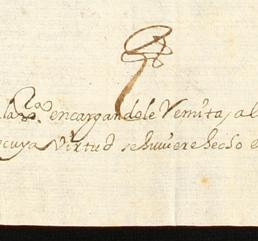 encargandole Remita, al
cuya Virtud se huviere hecho e